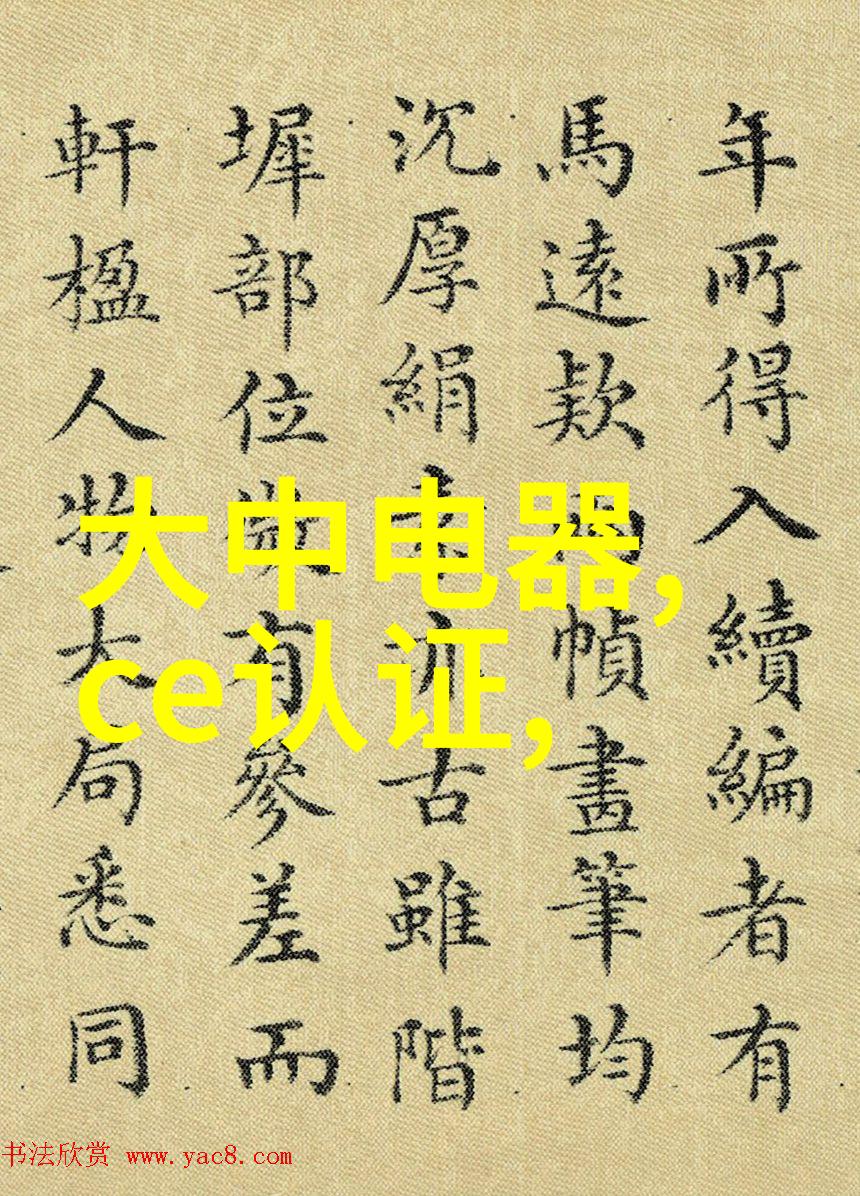 年所得入續編者有
馬遠欵幀畫筆均
沉厚絹素亦古雖階
墀部位微有參差而
軒楹人物大局悉同
大中电器,
ce认证,
书法欣赏 www.yac8.com